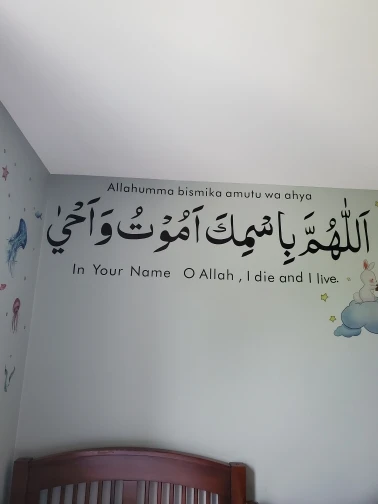 Allahumma bismika amutu wa ahya
اَللّٰهُمَّ بِاسْمِكَ اَمُوْتُ وَاَحْيٰ
In Your Name O Allah , I die and I live.